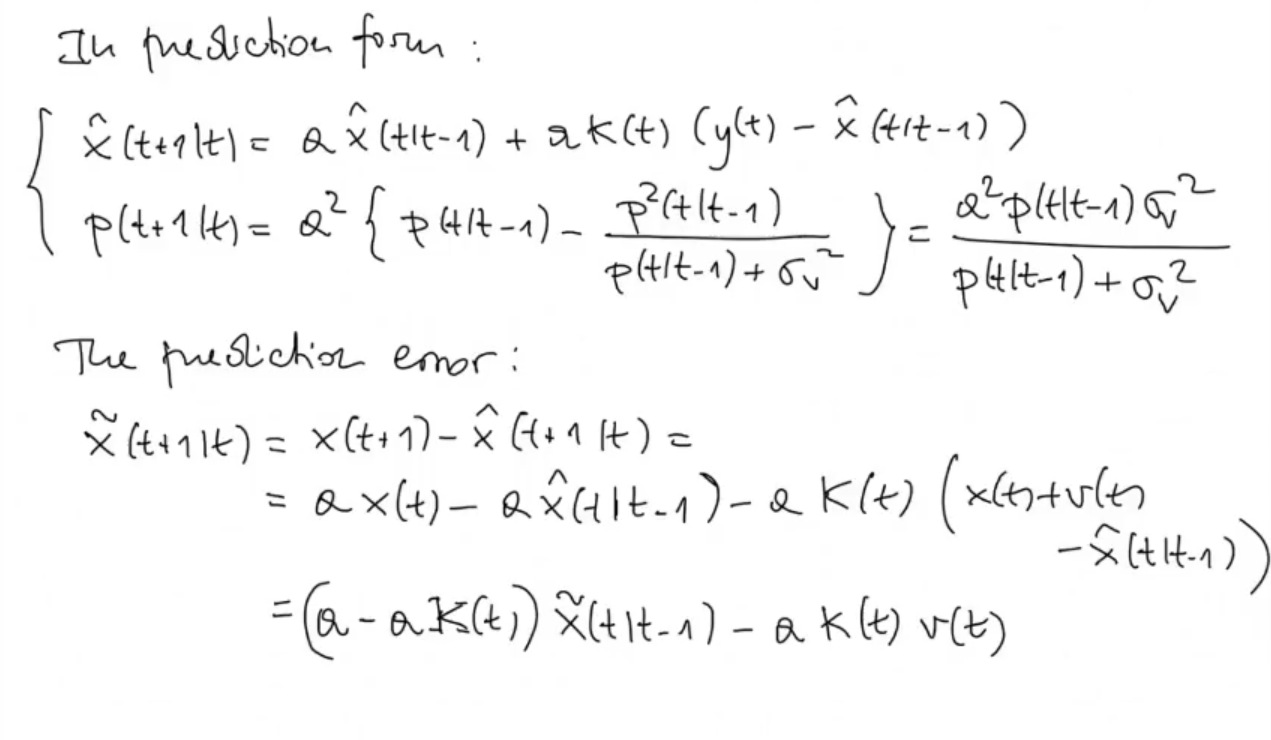 In prediction form :
x̂(t+1|t) = a x̂(t|t-1) + a K(t) (y(t) - x̂(t|t-1))
p(t+1|t) = a² { p(t|t-1) - p²(t|t-1) / (p(t|t-1) + σ_v²) } = a² p(t|t-1) σ_v² / (p(t|t-1) + σ_v²)
The prediction error :
x̃(t+1|t) = x(t+1) - x̂(t+1|t) =
= a x(t) - a x̂(t|t-1) - a K(t) (x(t)+v(t)
- x̂(t|t-1))
= (a - a K(t)) x̃(t|t-1) - a K(t) v(t)